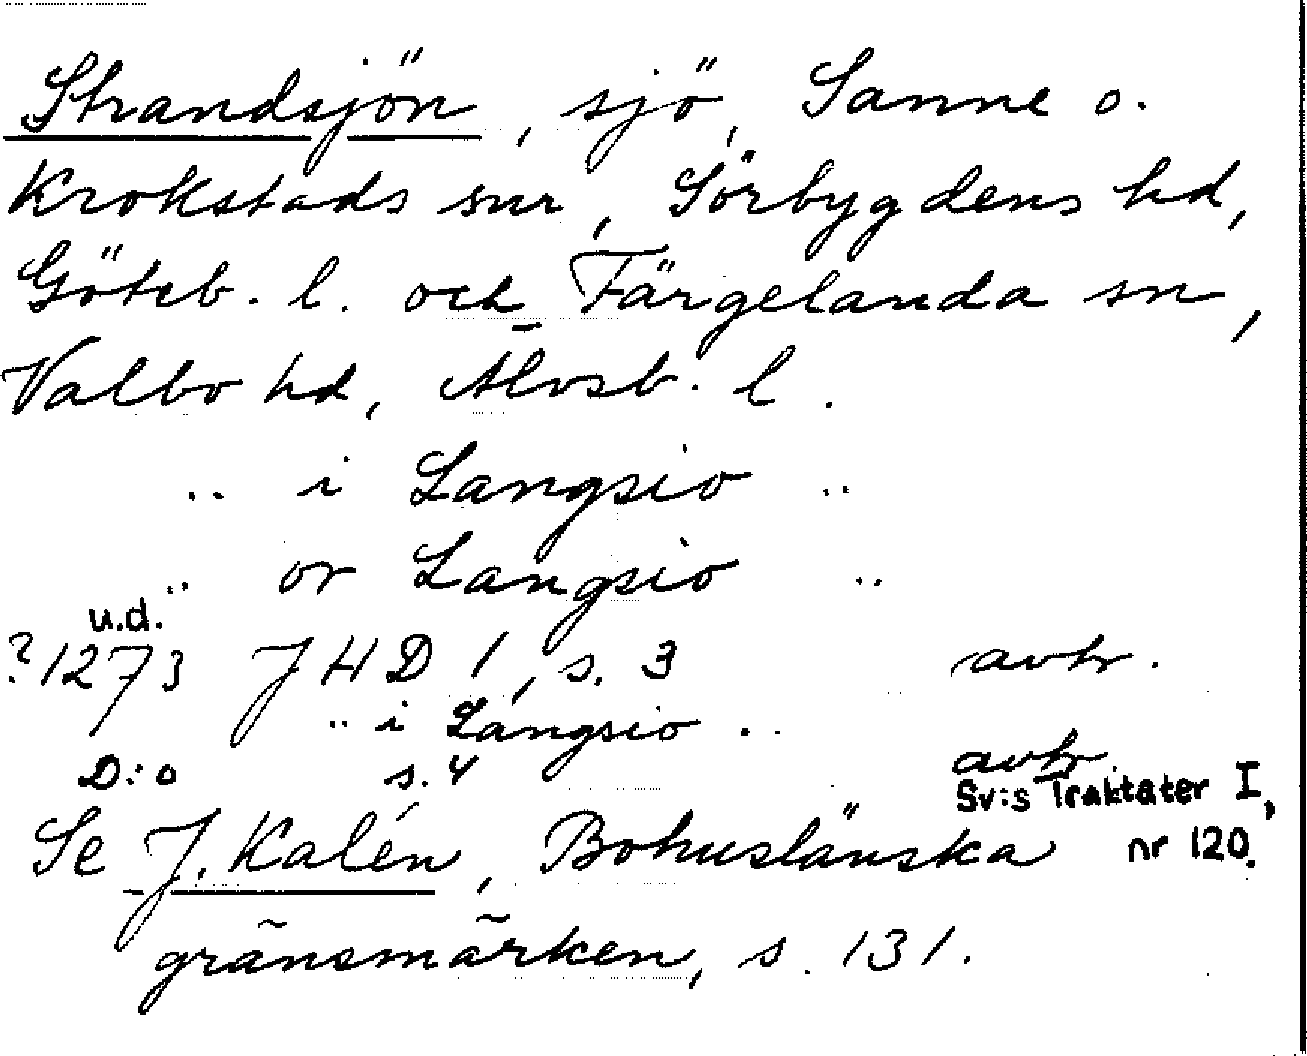 Strandsjön, sjö, Sanne o.
Krokstads snr, Sörbygdens hd,
Göteb. l. och Färgelanda sn,
Valbo hd, Älvsb. l.
.. i Langsio ..
.. or Langsio ..
u.d.
?1273 JHD 1, s. 3 avtr.
.. i Langsio ..
D:o s. 4 avtr.
Sv:s Traktater I,
nr 120.
Se J. Kalén, Bohuslänska
gränsmärken, s. 131.